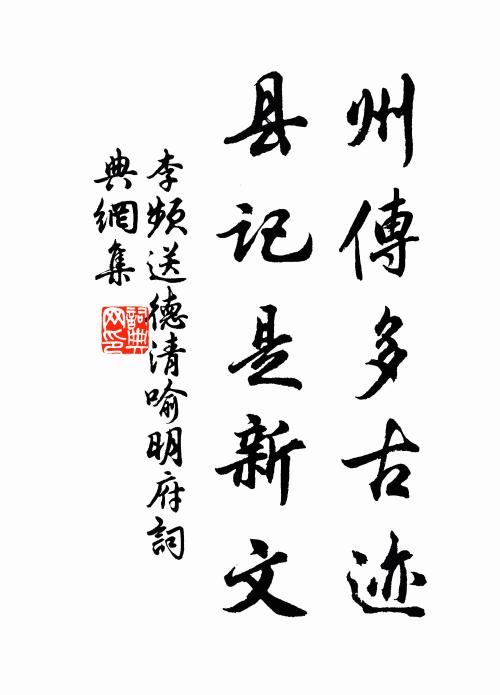 州傳多古迹
县记是新文
李频送德清喻明府詞
典網集
詞典
网印